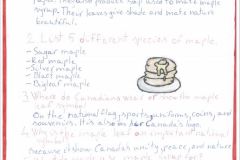 syrup. Their leaves give shade and make nature
beautiful.
2. List 5 different species of maple.
- Sugar maple
- Red maple
- Silver maple
- Black maple
- Bigleaf maple
3. What do Canadians wear or view the maple
leaf symbol?
On the national flag, sports uniforms, coins, and
souvenirs. It is also on Canada's logo.
4. Why is the maple leaf an important national
symbol?
Because it show Canada's unity, peace, and nature